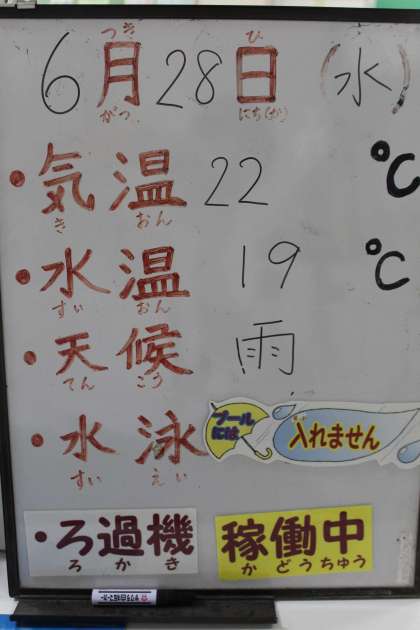 つき ひ
6月28日 (水)
がつ にち(か)
・気温 22 ℃
き おん
・水温 19 ℃
すい おん
・天候 雨
てん こう
・水泳 プールには 入れません
すい えい
・ろ過機 稼働中
ろ か き か どう ちゅう